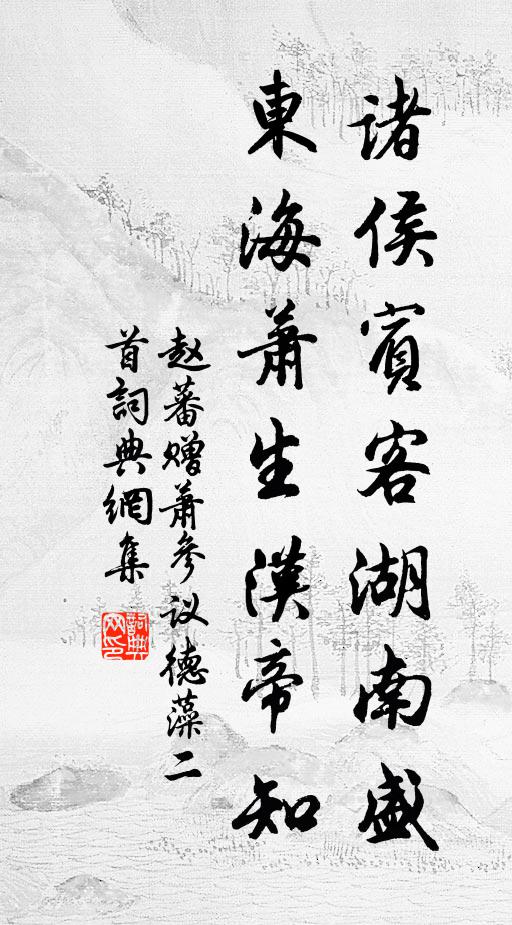 诸侯賓客湖南盛
東海萧生漢帝知
赵蕃赠萧参议德藻二
首詞典網集
詞典網印